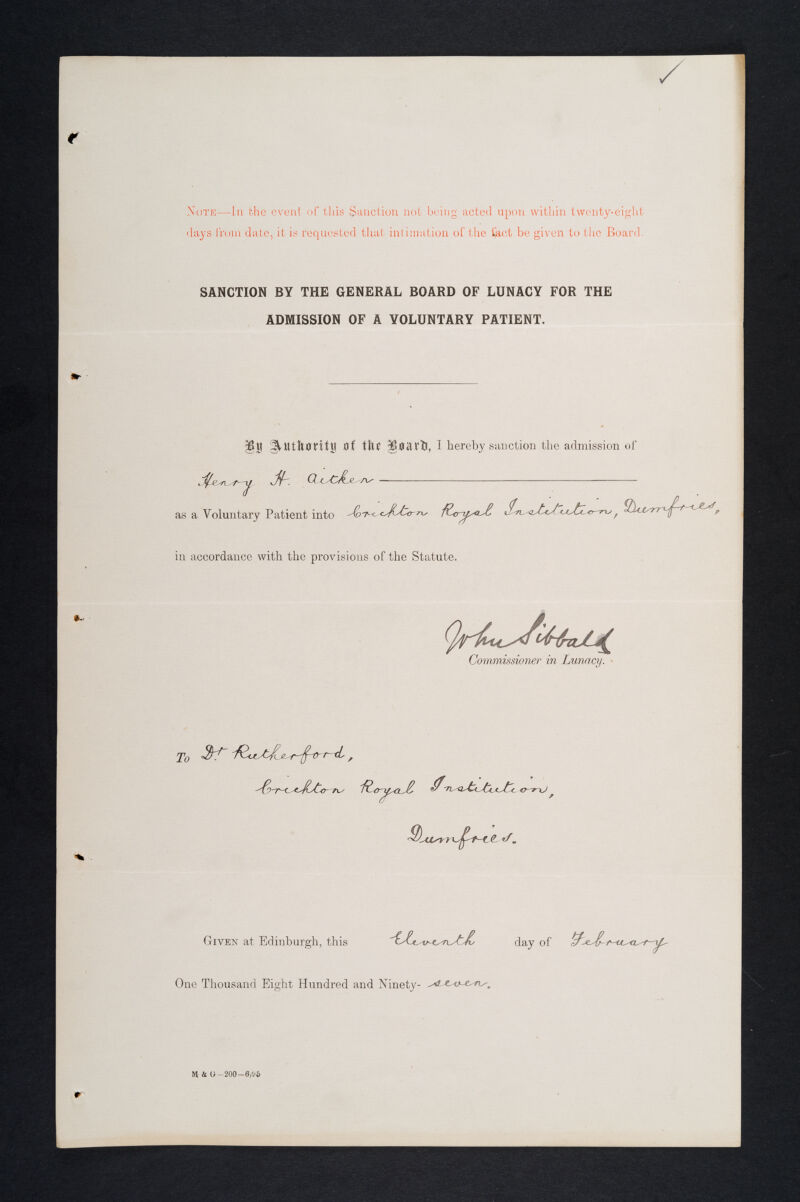 NOTE—In the event of this Sanction not being acted upon within twenty-eight
days from date, it is requested that intimation of the fact be given to the Board.
SANCTION BY THE GENERAL BOARD OF LUNACY FOR THE
ADMISSION OF A VOLUNTARY PATIENT.
By Authority of the Board, I hereby sanction the admission of
Henry H. Aitken
as a Voluntary Patient into Crichton Royal Institution, Dumfries,
in accordance with the provisions of the Statute.
John Sibbald
Commissioner in Lunacy.
To Dr. Rutherford,
Crichton Royal Institution,
Dumfries.
GIVEN at Edinburgh, this Eleventh day of February
One Thousand Eight Hundred and Ninety- seven.
M & G – 200 – 6/95